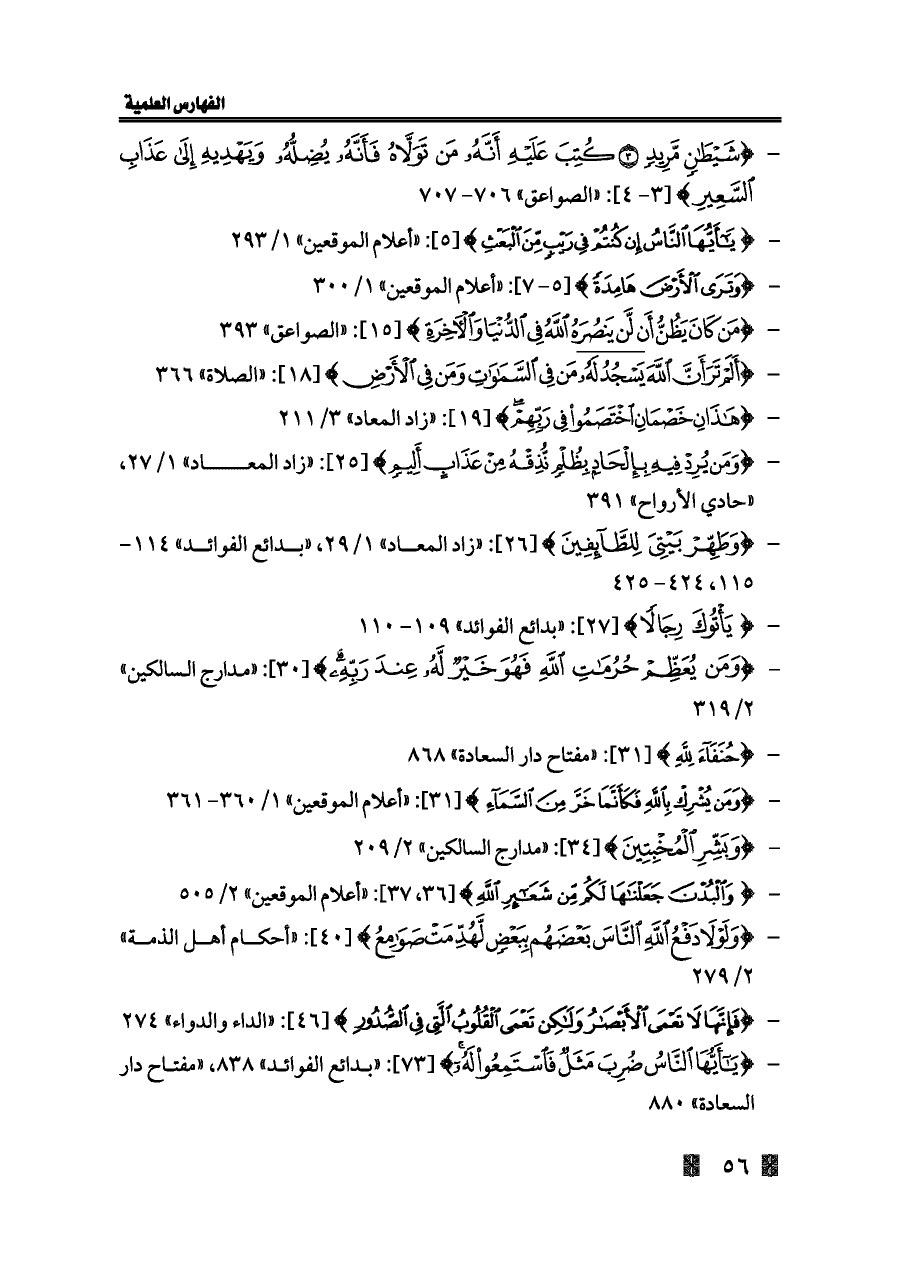 الفهارس العلمية
- ﴿شَيْطَانٍ مَّرِيدٍ ۝٣ كُتِبَ عَلَيْهِ أَنَّهُۥ مَن تَوَلَّاهُ فَأَنَّهُۥ يُضِلُّهُۥ وَيَهْدِيهِ إِلَىٰ عَذَابِ
ٱلسَّعِيرِ﴾ [٣- ٤]: «الصواعق» ٧٠٦- ٧٠٧
- ﴿يَٰٓأَيُّهَا ٱلنَّاسُ إِن كُنتُمْ فِى رَيْبٍ مِّنَ ٱلْبَعْثِ﴾ [٥]: «أعلام الموقعين» ١/ ٢٩٣
- ﴿وَتَرَى ٱلْأَرْضَ هَامِدَةً﴾ [٥- ٧]: «أعلام الموقعين» ١/ ٣٠٠
- ﴿مَن كَانَ يَظُنُّ أَن لَّن يَنصُرَهُ ٱللَّهُ فِى ٱلدُّنْيَا وَٱلْءَاخِرَةِ﴾ [١٥]: «الصواعق» ٣٩٣
- ﴿أَلَمْ تَرَ أَنَّ ٱللَّهَ يَسْجُدُ لَهُۥ مَن فِى ٱلسَّمَٰوَٰتِ وَمَن فِى ٱلْأَرْضِ﴾ [١٨]: «الصلاة» ٣٦٦
- ﴿هَٰذَانِ خَصْمَانِ ٱخْتَصَمُوا۟ فِى رَبِّهِمْ ۖ﴾ [١٩]: «زاد المعاد» ٣/ ٢١١
- ﴿وَمَن يُرِدْ فِيهِ بِإِلْحَادٍۭ بِظُلْمٍ نُّذِقْهُ مِنْ عَذَابٍ أَلِيمٍ﴾ [٢٥]: «زاد المعـــــاد» ١/ ٢٧،
«حادي الأرواح» ٣٩١
- ﴿وَطَهِّرْ بَيْتِىَ لِلطَّآئِفِينَ﴾ [٢٦]: «زاد المعـاد» ١/ ٢٩، «بـدائع الفوائـد» ١١٤-
١١٥، ٤٢٤- ٤٢٥
- ﴿يَأْتُوكَ رِجَالًا﴾ [٢٧]: «بدائع الفوائد» ١٠٩- ١١٠
- ﴿وَمَن يُعَظِّمْ حُرُمَٰتِ ٱللَّهِ فَهُوَ خَيْرٌ لَّهُۥ عِندَ رَبِّهِۦ ۗ﴾ [٣٠]: «مـدارج السالكين»
٢/ ٣١٩
- ﴿حُنَفَآءَ لِلَّهِ﴾ [٣١]: «مفتاح دار السعادة» ٨٦٨
- ﴿وَمَن يُشْرِكْ بِٱللَّهِ فَكَأَنَّمَا خَرَّ مِنَ ٱلسَّمَآءِ﴾ [٣١]: «أعلام الموقعين» ١/ ٣٦٠- ٣٦١
- ﴿وَبَشِّرِ ٱلْمُخْبِتِينَ﴾ [٣٤]: «مدارج السالكين» ٢/ ٢٠٩
- ﴿وَٱلْبُدْنَ جَعَلْنَٰهَا لَكُم مِّن شَعَٰٓئِرِ ٱللَّهِ﴾ [٣٦، ٣٧]: «أعلام الموقعين» ٢/ ٥٠٥
- ﴿وَلَوْلَا دَفْعُ ٱللَّهِ ٱلنَّاسَ بَعْضَهُم بِبَعْضٍ لَّهُدِّمَتْ صَوَٰمِعُ﴾ [٤٠]: «أحكـام أهـل الذمـة»
٢/ ٢٧٩
- ﴿فَإِنَّهَا لَا تَعْمَى ٱلْأَبْصَٰرُ وَلَٰكِن تَعْمَى ٱلْقُلُوبُ ٱلَّتِى فِى ٱلصُّدُورِ﴾ [٤٦]: «الداء والدواء» ٢٧٤
- ﴿يَٰٓأَيُّهَا ٱلنَّاسُ ضُرِبَ مَثَلٌ فَٱسْتَمِعُوا۟ لَهُۥٓ ۚ﴾ [٧٣]: «بـدائع الفوائـد» ٨٣٨، «مفتـاح دار
السعادة» ٨٨٠
٥٦